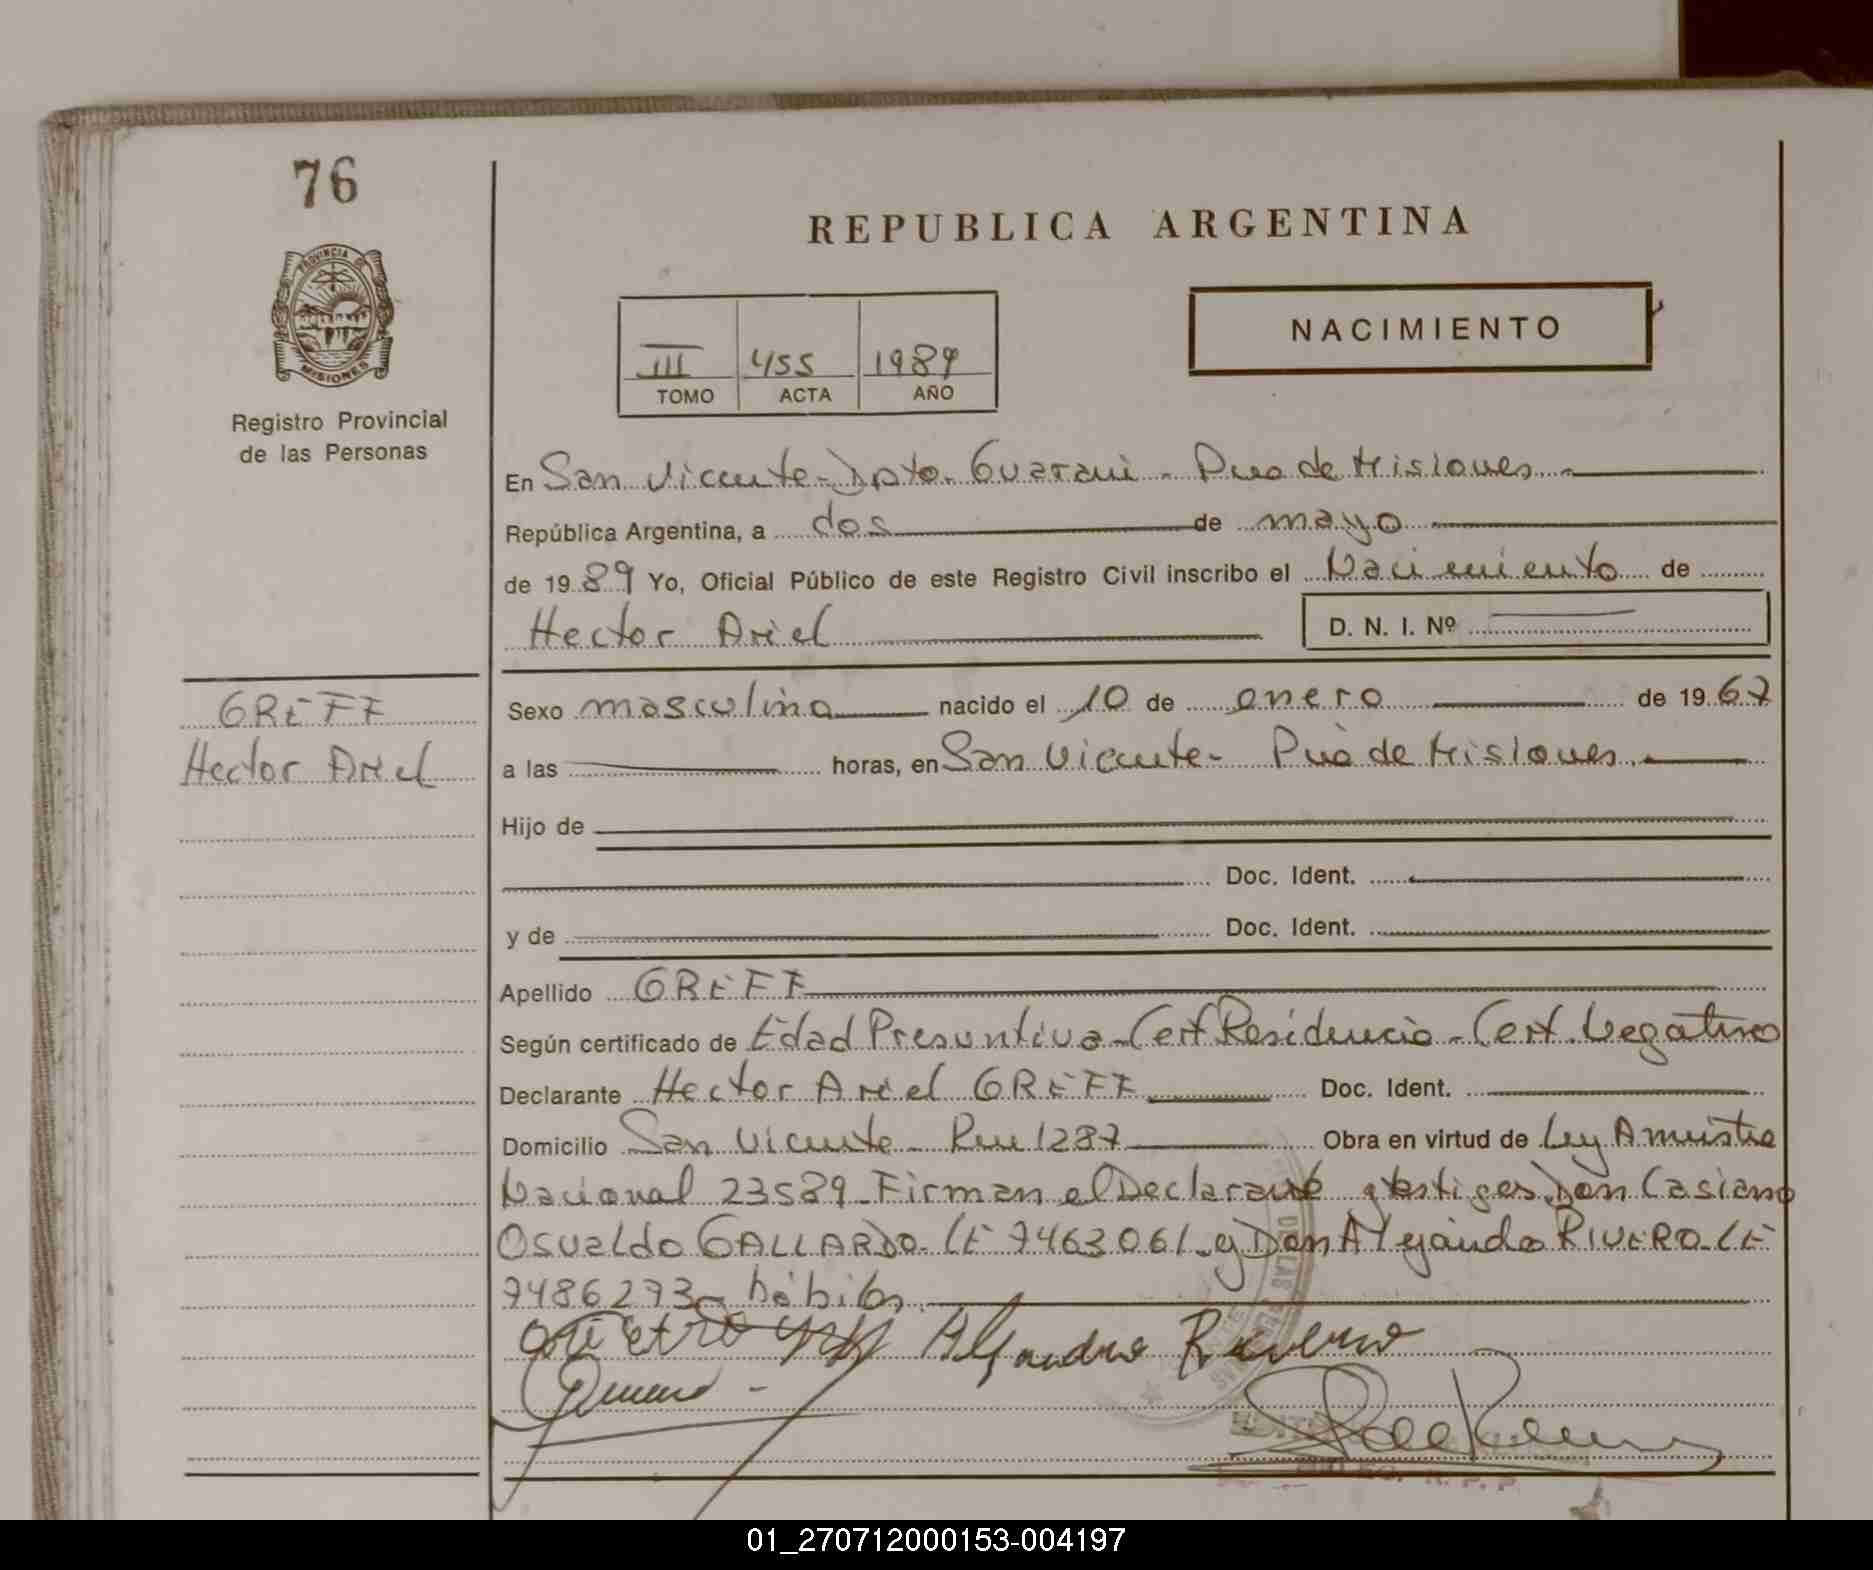 76
REPUBLICA ARGENTINA
PROVINCIA DE
MISIONES
NACIMIENTO
III 455 1989
TOMO ACTA AÑO
Registro Provincial
de las Personas
En San Vicente - Dpto. Guarani - Pcia de Misiones
República Argentina, a dos de mayo
de 1989 Yo, Oficial Público de este Registro Civil inscribo el Nacimiento de
Hector Ariel D. N. I. Nº
GREFF
Hector Ariel
Sexo masculino nacido el 10 de enero de 1967
a las horas, en San Vicente - Pcia de Misiones
Hijo de
Doc. Ident.
y de Doc. Ident.
Apellido GREFF
Según certificado de Edad Presuntiva - Cert Residencia - Cert. Negativo
Declarante Hector Ariel GREFF Doc. Ident.
Domicilio San Vicente - 1287 Obra en virtud de Ley Amnistia
Nacional 23589 - Firman el Declarante y testigos Don Casiano
Osvaldo GALLARDO - LE 7463061 - y Don Alejandro RIVERO - LE
7486273 - hábiles
Alejandro Rivero
R. P. P.
01_270712000153-004197